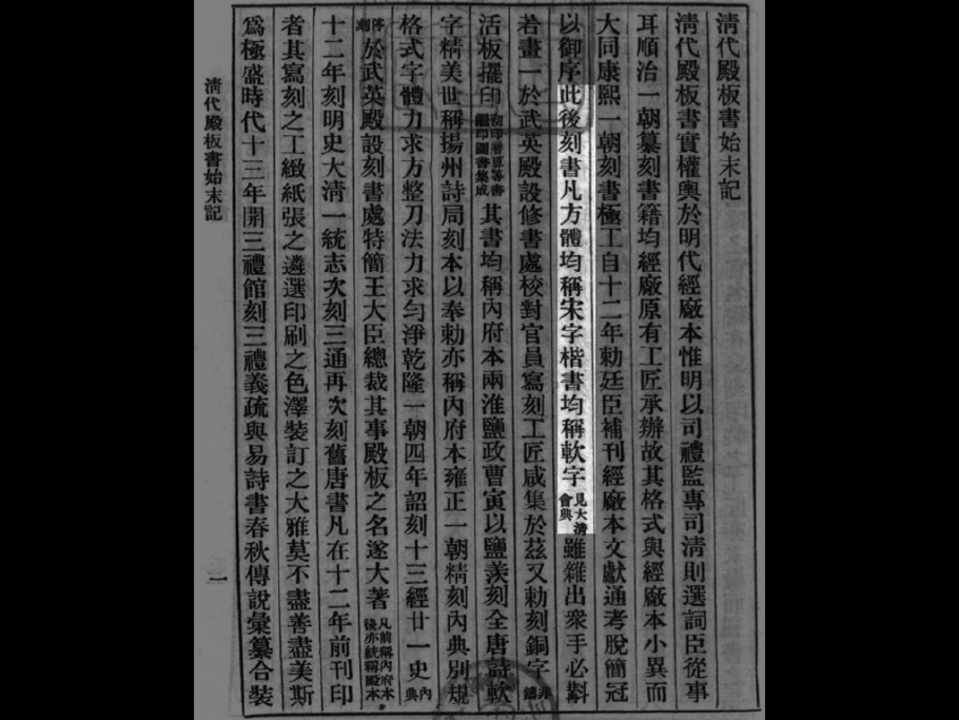 清代殿板書始末記
清代殿板書實權輿於明代經廠本惟明以司禮監專司清則選詞臣從事
耳順治一朝纂刻書籍均經廠原有工匠承辦故其格式與經廠本小異而
大同康熙一朝刻書極工自十二年勅廷臣補刊經廠本文獻通考脫簡冠
以御序此後刻書凡方體均稱宋字楷書均稱軟字見大清會典雖雜出衆手必斠
若畫一於武英殿設修書處校對官員寫刻工匠咸集於茲又勅刻銅字
活板擺印圖書集成其書均稱內府本兩淮鹽政曹寅以鹽羨刻全唐詩軟
字精美世稱揚州詩局刻本以奉勅亦稱內府本雍正一朝精刻內典別規
格式字體力求方整刀法力求勻淨乾隆一朝四年詔刻十三經廿一史內典
於武英殿設刻書處特簡王大臣總裁其事殿板之名遂大著凡前稱內府本後亦統稱殿本
十二年刻明史大清一統志次刻三通再次刻舊唐書凡在十二年前刊印
者其寫刻之工緻紙張之遴選印刷之色澤裝訂之大雅莫不盡善盡美斯
爲極盛時代十三年開三禮館刻三禮義疏與易詩書春秋傳說彙纂合裝
清代殿板書始末記
一